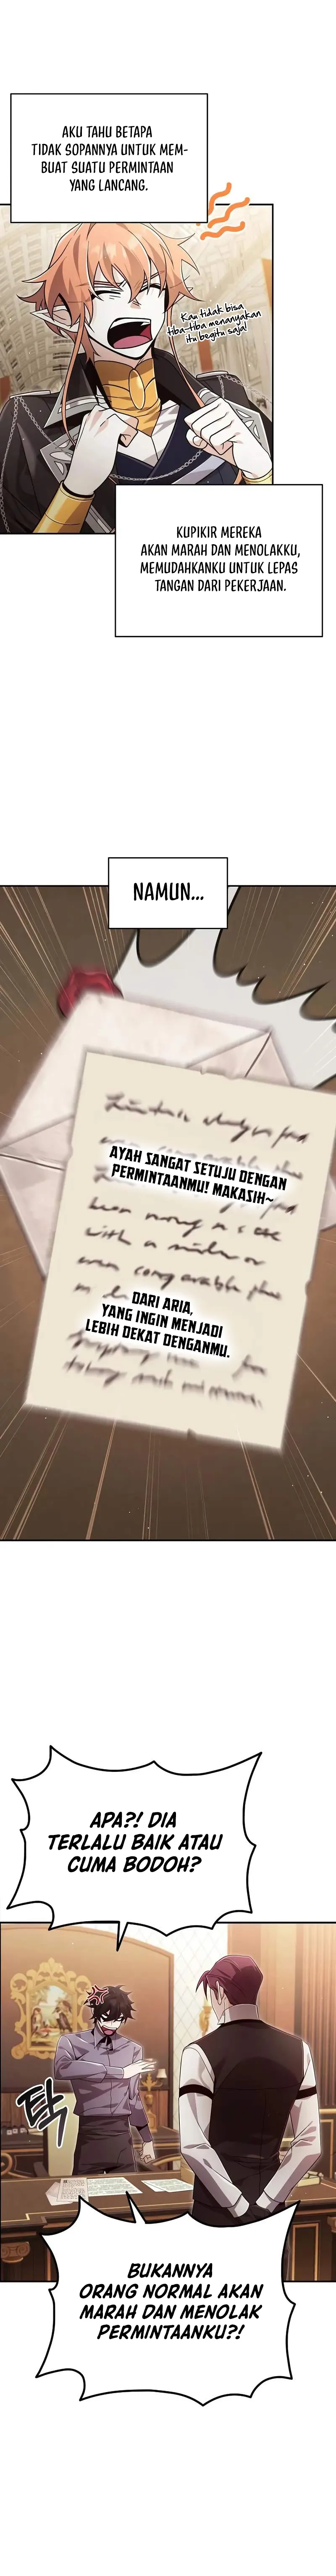 AKU TAHU BETAPA
TIDAK SOPANNYA UNTUK MEM-
BUAT SUATU PERMINTAAN
YANG LANCANG.
Kau tidak bisa
tiba-tiba menanyakan
itu begitu saja!
KUPIKIR MEREKA
AKAN MARAH DAN MENOLAKKU,
MEMUDAHKANKU UNTUK LEPAS
TANGAN DARI PEKERJAAN.
NAMUN...
AYAH SANGAT SETUJU DENGAN
PERMINTAANMU! MAKASIH~
DARI ARIA,
YANG INGIN MENJADI
LEBIH DEKAT DENGANMU.
APA?! DIA
TERLALU BAIK ATAU
CUMA BODOH?
탁
BUKANNYA
ORANG NORMAL AKAN
MARAH DAN MENOLAK
PERMINTAANKU?!